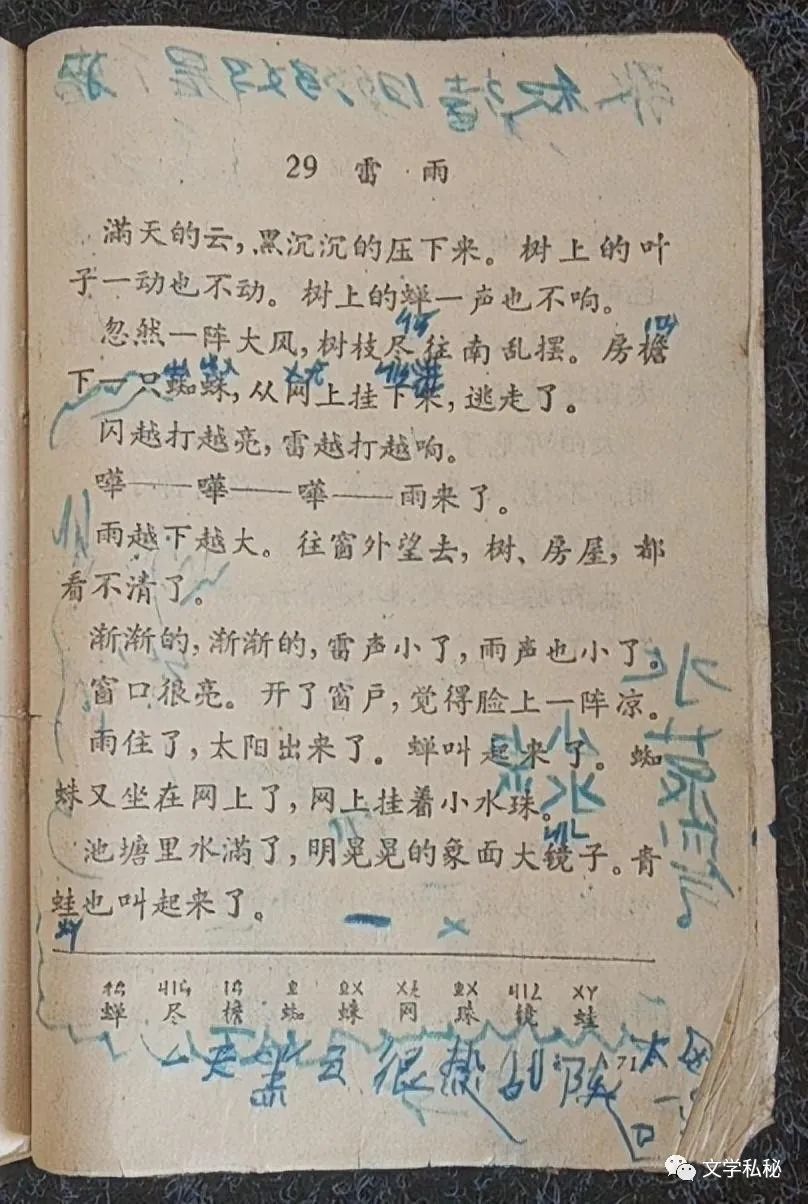 29 雷 雨
滿天的云，黑沉沉的压下来。树上的叶
子一动也不动。树上的蝉一声也不响。
忽然一阵大风，树枝尽往南乱摆。房檐
下一只蜘蛛，从网上挂下来，逃走了。
闪越打越亮，雷越打越响。
嘩——嘩——嘩——雨来了。
雨越下越大。往窗外望去，树、房屋，都
看不清了。
渐渐的，渐渐的，雷声小了，雨声也小了。
窗口很亮。开了窗戶，觉得脸上一阵凉。
雨住了，太阳出来了。蝉叫起来了。蜘
蛛又坐在网上了，网上挂着小水珠。
池塘里水滿了，明晃晃的象面大镜子。青
蛙也叫起来了。
ㄔㄢ ㄐㄧㄣ ㄧㄢ ㄓ ㄓㄨ ㄨㄤ ㄓㄨ ㄐㄧㄥ ㄨㄚ
蝉 尽 檐 蜘 蛛 网 珠 镜 蛙
71
文学私秘